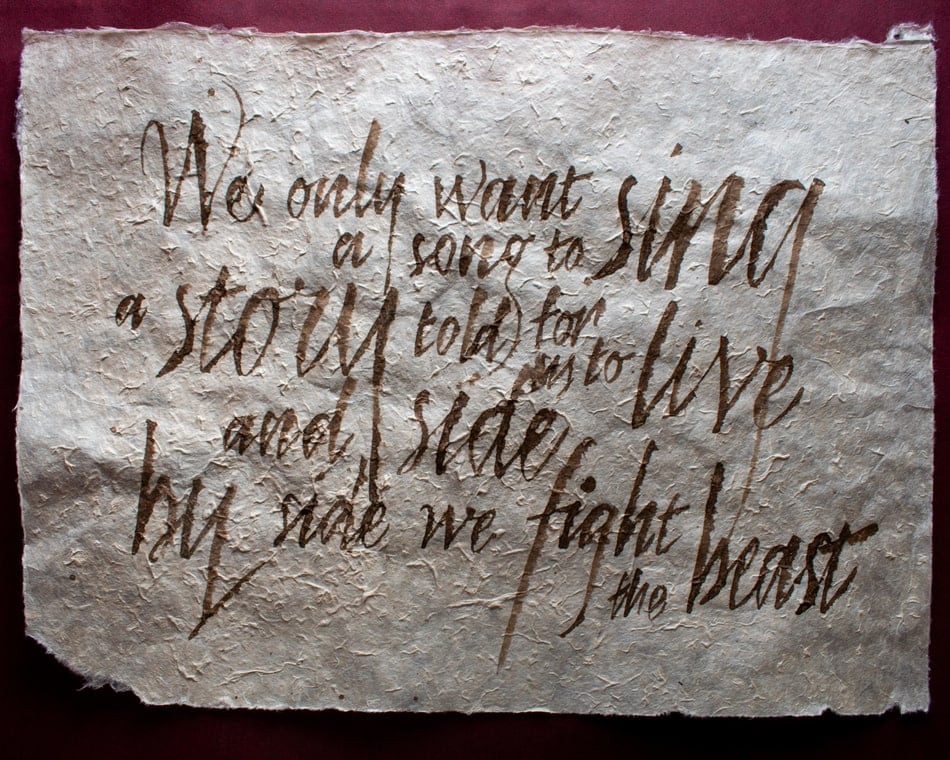 We only want
a song to sing
a story told for
us to live
and side
by side we fight
the beast